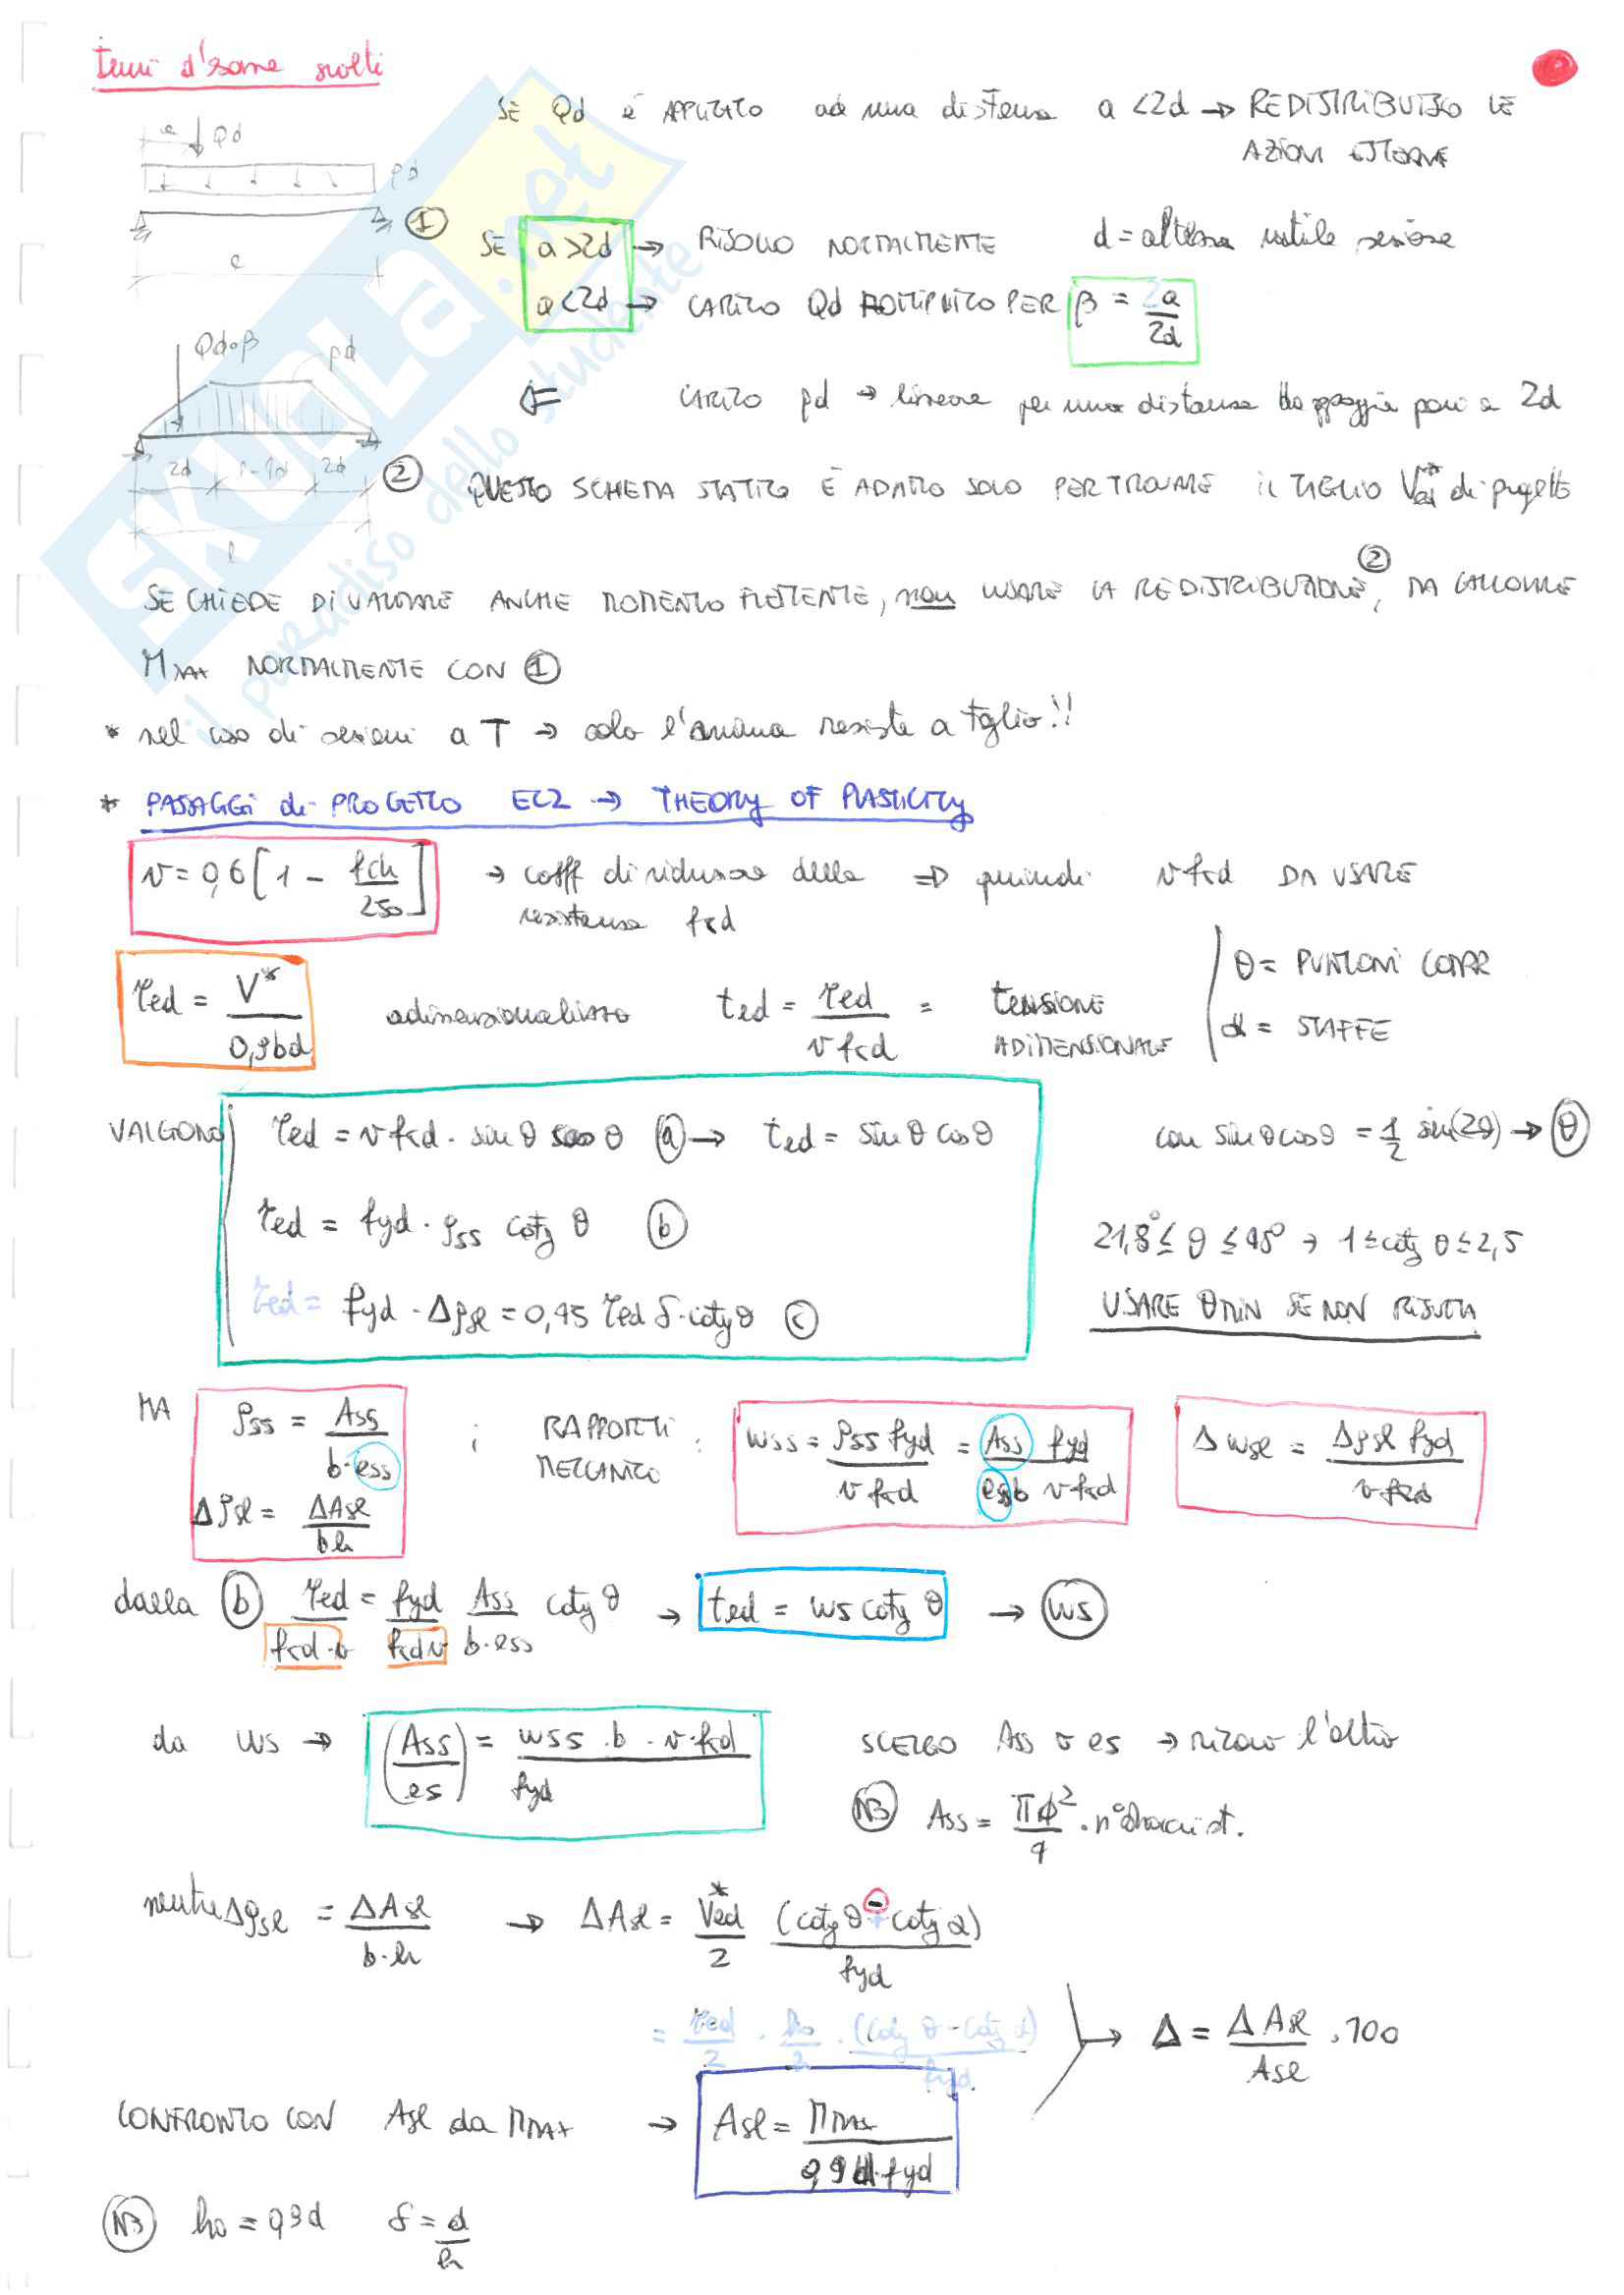 temi d'esame svolti
SE Qd è APPLICATO ad una distanza a <2d → REDISTRIBUISCO LE
AZIONI ESTERNE
a Qd
pd
①
SE a>2d → RISOLVO NORMALMENTE d = altezza utile sezione
a<2d → CARICO Qd MOLTIPLICO PER β = a/2d
Qd·β pd
⇐ CARICO pd → lineare per una distanza da appoggio pari a 2d
2d l-4d 2d
②
l
QUESTO SCHEMA STATICO È ADATTO SOLO PER TROVARE il TAGLIO Ved* di progetto
SE CHIEDE DI VALUTARE ANCHE MOMENTO FLETTENTE, non USARE LA REDISTRIBUZIONE ②, MA CALCOLARE
MMAX NORMALMENTE CON ①
* nel caso di sezioni a T → solo l'anima resiste a taglio!!
* PASSAGGI di PROGETTO EC2 → THEORY OF PLASTICITY
ν = 0,6 [1 - fck/250] → coeff di riduzione della resistenza fcd ⇒ quindi νfcd DA USARE
τed = V*/0,9bd adimensionalizzo ted = τed/νfcd = TENSIONE ADIMENSIONALE
θ = PUNTONI COMPR
α = STAFFE
VALGONO
τed = νfcd · sinθ cosθ ⓐ → ted = sinθ cosθ con sinθcosθ = 1/2 sin(2θ) → θ
τed = fyd · ρss cotg θ ⓑ
21,8° ≤ θ ≤ 45° → 1 ≤ cotg θ ≤ 2,5
τed = fyd · Δρsl = 0,45 τed δ · cotgθ ⓒ
USARE θMIN SE NON RISULTA
MA ρss = Ass/b·ess ; RAPPORTI MECCANICO : wss = ρss fyd/νfcd = Ass fyd/essb νfcd Δwsl = Δρsl fyd/νfcd
Δρsl = ΔAsl/bh
dalla ⓑ τed/fcd·ν = fyd/fcdν Ass/b·ess cotg θ → ted = ws cotg θ → ws
da ws → (Ass/es) = wss · b · ν·fcd/fyd SCELGO Ass o es → ricavo l'altro
NB Ass = πφ²/4 · n° bracci st.
mentre Δρsl = ΔAsl/b·h → ΔAsl = Ved*/2 (cotg θ - cotg α)/fyd
= τed/2 · ho/2 · (cotg θ - cotg α)/fyd
→ Δ = ΔAsl/Asl · 100
CONFRONTO CON Asl da MMAX → Asl = MMAX/0,9d·fyd
NB ho = 0,9d δ = d/h
SKUOLA.net
il paradiso dello studente